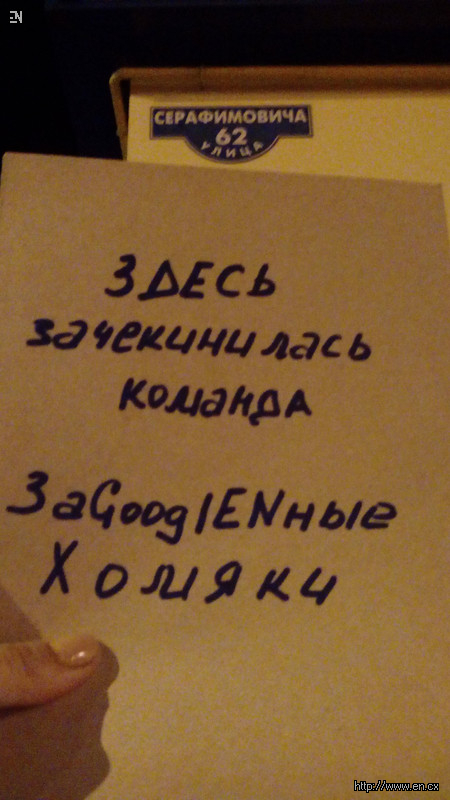 EN
СЕРАФИМОВИЧА
62
УЛИЦА
ЗДЕСЬ
зачекинилась
команда
ЗаGooglENные
Хомяки
http://www.en.cx